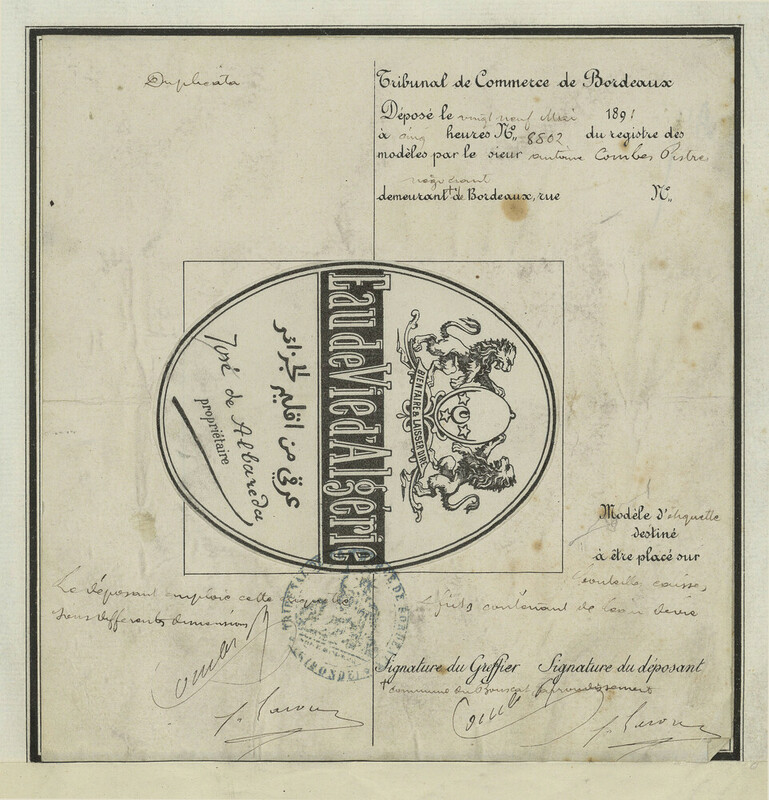 Duplicata
Tribunal de Commerce de Bordeaux
Déposé le vingt neuf Mai 1891
à cinq heures N° 8802 du registre des
modèles par le sieur antoine Combes Pistre
négociant
demeurant à Bordeaux, rue N°
BIEN FAIRE & LAISSER DIRE
Eau de Vie d'Algérie
عرقي من اقليم الجزائر
José de Albareda
propriétaire
Modèle d'étiquette
destiné
à être placé sur
bouteille, caisses,
& fûts contenant de l'eau de vie
Le déposant emploie cette étiquette
sous différents dimensions
TRIBUNAL DE COMMERCE DE BORDEAUX
(GIRONDE)
Signature du Greffier Signature du déposant
commune du Bouscat, arrondissement